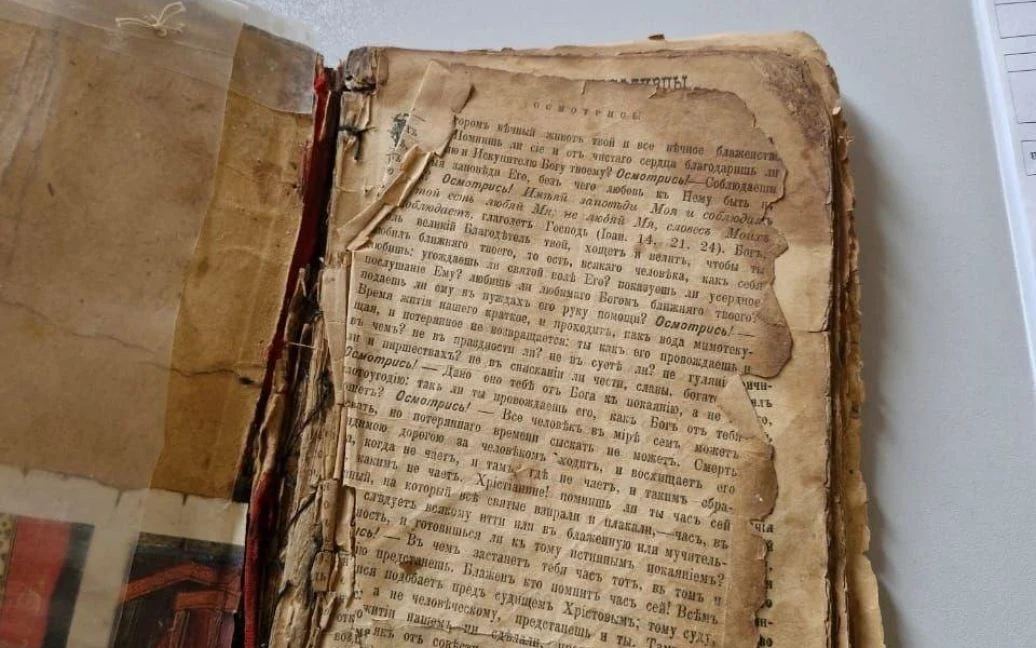 ОСМОТРИСЬ
вѣчный животъ твой и все вѣчное блаженство
Помнишь ли сіе и отъ чистаго сердца благодаришь ли
и Искупителю Богу твоему? Осмотрись!—Соблюдаеши
заповѣда Его, безъ чего любовь къ Нему быть
Осмотрись! Имѣяй заповѣди Моя и соблюдаяй
той есть любяй Мя, не любяй Мя, словесъ Моихъ
соблюдаетъ, глаголетъ Господь (Іоан. 14. 21. 24). Богъ,
великій Благодѣтель твой, хощетъ и велитъ, чтобы ты
любилъ ближняго твоего, то есть, всякаго человѣка, какъ себя
любишь: угождаешь ли святой волѣ Его? показуешь ли усердное
послушаніе Ему? любишь ли любимаго Богомъ ближняго твоего?
подаешь ли ему въ нуждахъ его руку помощи? Осмотрись! —
Время житія нашего краткое, и проходитъ, какъ вода мимотеку-
щая, и потерянное не возвращается: ты какъ его провождаешь и
въ чемъ? не въ праздности ли? не въ суетѣ ли? не гуляні
ли и пиршествахъ? не въ снисканіи ли чести, славы, богат
Осмотрись! — Дано оно тебѣ отъ Бога къ покаянію, а не
плотоугодію: такъ ли ты провождаешь его, какъ Богъ отъ тебя
Осмотрись! — Все человѣкъ въ мірѣ семъ можетъ
но потеряннаго времени сыскать не можетъ. Смерть
дорогою за человѣкомъ ходитъ, и восхищаетъ его
когда не чаетъ, и тамъ, гдѣ не чаетъ, и такимъ обра-
какимъ не чаетъ. Хрістіанине! помнишь ли ты часъ сей
на который всѣ святые взирали и плакали,—часъ, въ
слѣдуетъ всякому итти или къ блаженную или мучитель-
ность, и готовишься ли къ тому истиннымъ покаяніемъ?
— Въ чемъ застанетъ тебя часъ тотъ, въ томъ и
предстанешь. Блаженъ кто помнитъ часъ сей! Всѣмъ
подобаетъ предъ судищемъ Хрістовымъ; тому суду,
а не человѣческому, предстанешь и ты.
житіи нашемъ ни сдѣлали,
отъ совѣсти